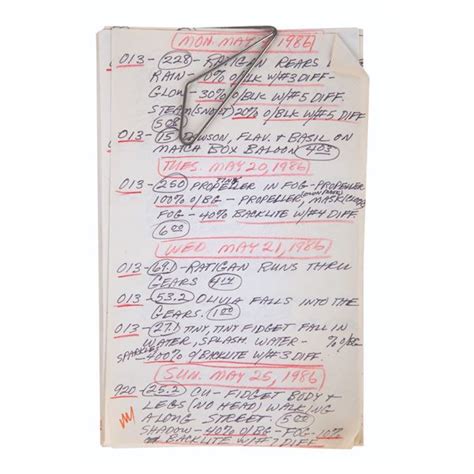 MON. MAY 1986
013-(228- RATIGAN REARS
RAIN- 70% O/BLK W/#3 DIFF-
GLOW- 30% O/BLK W/#5 DIFF.
STEAM (SNOT) 20% O/BLK W/#5 DIFF.
013-(15 DAWSON, FLAV. & BASIL ON
MATCH BOX BALOON 403
TUES. MAY 20, 1986
013-(250) PROPELLER IN FOG-PROPELLER
100% O/BG- PROPELLER, MASK/CLOUDS
FOG-40% BACKLITE W/#4 DIFF.
600
WED MAY 21, 1986
013-(69.) RATIGAN RUNS THRU
GEARS 414
013-(53.2) OLIVIA FALLS INTO THE
GEARS. 100
013-(27.) TINY, TINY FIDGET FALL IN
WATER, SPLASH WATER- % O/BG
SPARKLES-400% O/BACKLITE W/#3 DIFF.
SUN. MAY 25, 1986
920-(25.2) CU-FIDGET BODY &
LEGS (NO HEAD) WALKING
ALONG STREET. 500
SHADOW-40% O/BG-FOG-10%
BACKLITE W/#7 DIFF